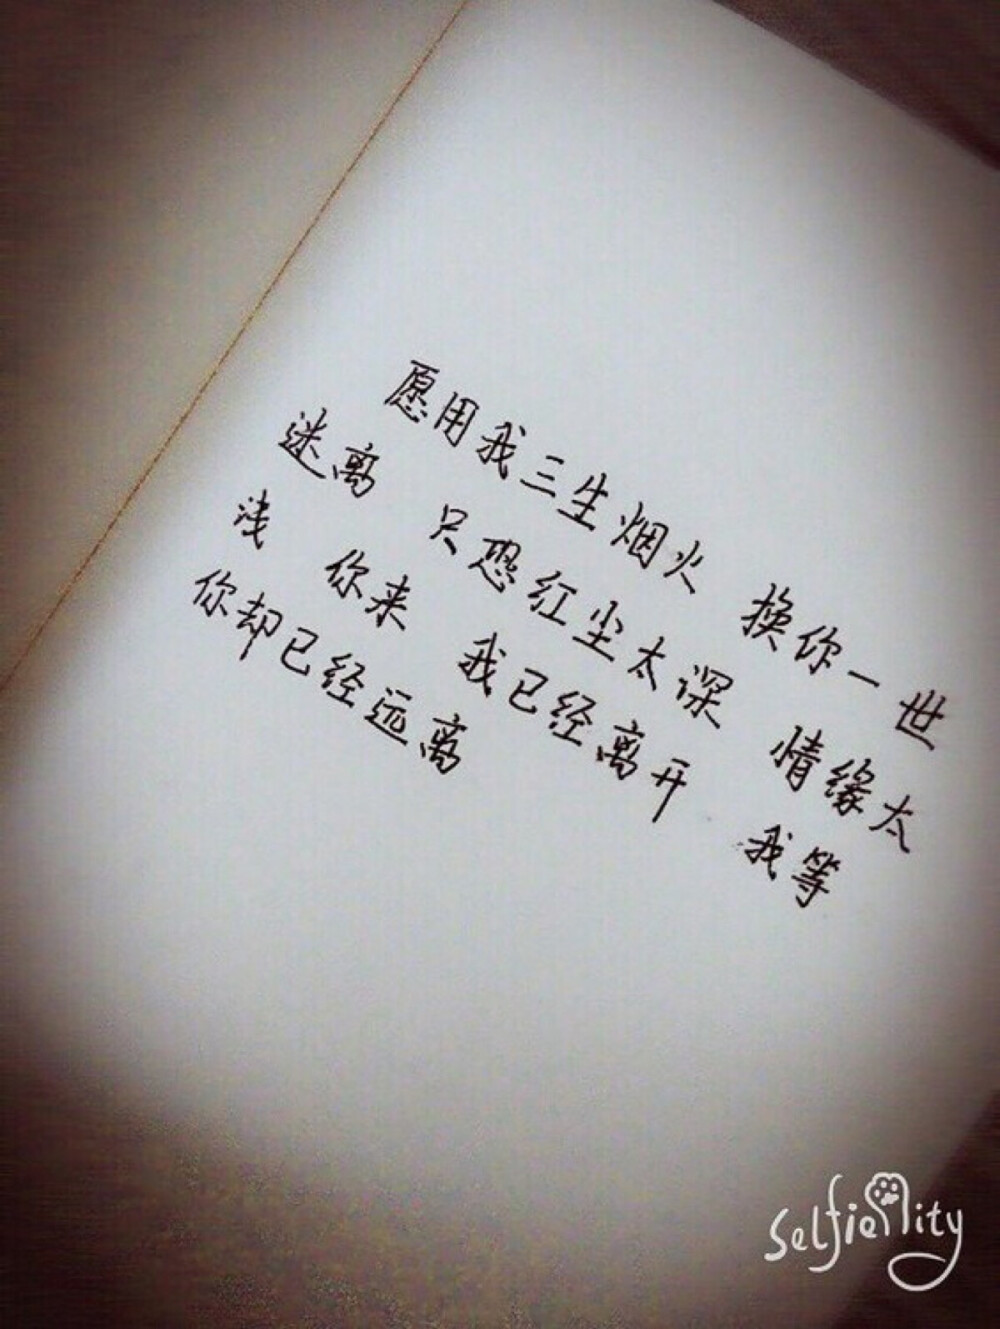 愿用我三生烟火 换你一世
迷离 只恐红尘太深 情缘太
浅 你来 我已经离开 我等
你却已经远离
Selfie